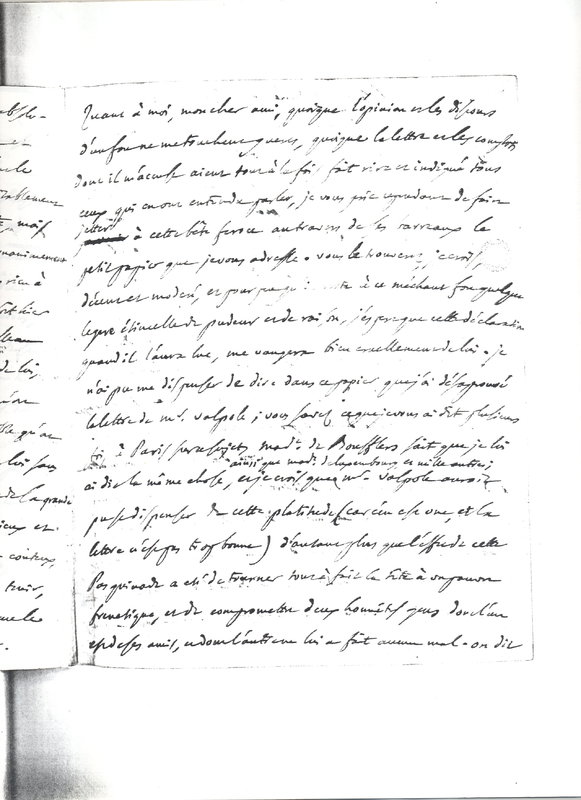 Quant à moi, mon cher ami, quoique l'opinion et les discours
d'un fou ne me touchent gueres, quoique la lettre et les complots
dont il m'accuse aient tout à la fois fait rire et indigné tous
ceux qui en ont entendu parler, je vous prie cependant de faire
jetter à cette bête feroce au travers de ses barreaux le
petit papier que je vous adresse. vous le trouverez, je crois,
décent et moderé, et pour peu qu'il reste à ce méchant fou quelque
legere étincelle de pudeur et de raison, j'espere que cette déclaration
quand il l'aura lue, me vangera bien cruellement de lui. je
n'ai pu me dispenser de dire dans ce papier que j'ai désaprouvé
la lettre de mr. Valpole; vous savez ce que je vous ai dit plusieurs
fois à Paris sur ce sujet; made. de Boufflers sait que je lui
ainsi que made. de luxembourg et mille autres;
ai dit la même chose, et je crois que mr. Valpole auroit
pu se dispenser de cette platitude (car c'en est une, et la
lettre n'est pas trop bonne) d'autant plus que l'effet de cette
Pasquinade a été de tourner tout à fait la tête à un pauvre
frenetique, et de compromettre deux honnêtes gens dont l'un
est de ses amis, et dont l'autre ne lui a fait aucun mal. on dit